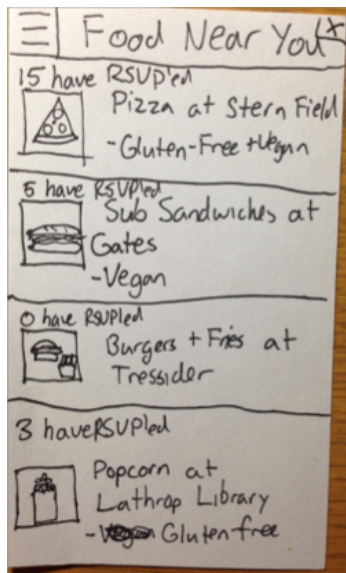 Food Near You
15 have RSVP'ed
Pizza at Stern Field
-Gluten-Free + Vegan
5 have RSVPled
Sub Sandwiches at
Gates
-Vegan
0 have RSVPled
Burgers + Fries at
Tressider
3 have RSVPled
Popcorn at
Lathrop Library
- Gluten free